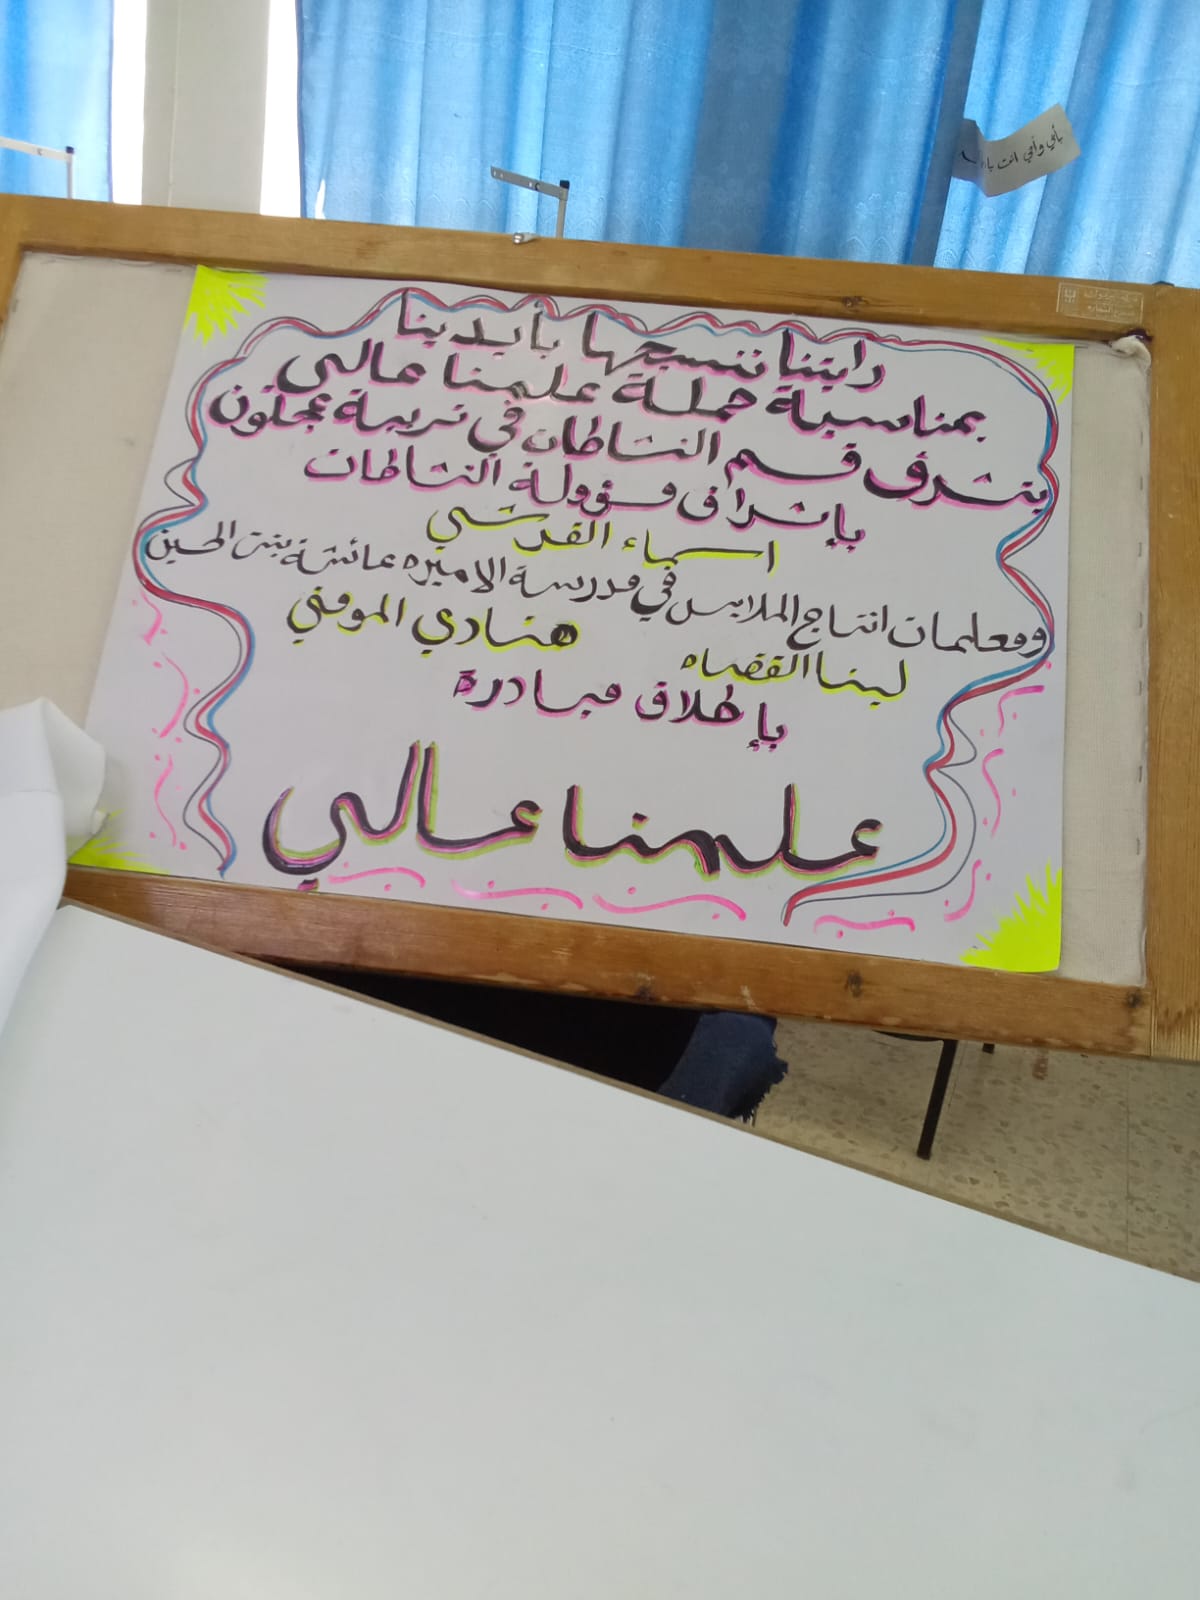 بأبي وأمي انت يا
رايتنا ننسجها بأيدينا
بمناسبة حملة علمنا عالي
يتشرف قسم النشاطات في تربية عجلون
بإشراف مسؤولة النشاطات
اسماء القرشي
ومعلمات انتاج الملابس في مدرسة الاميره عائشة بنت الحسين
لبنا القضاه هنادي المومني
بإطلاق مبادرة
علمنا عالي